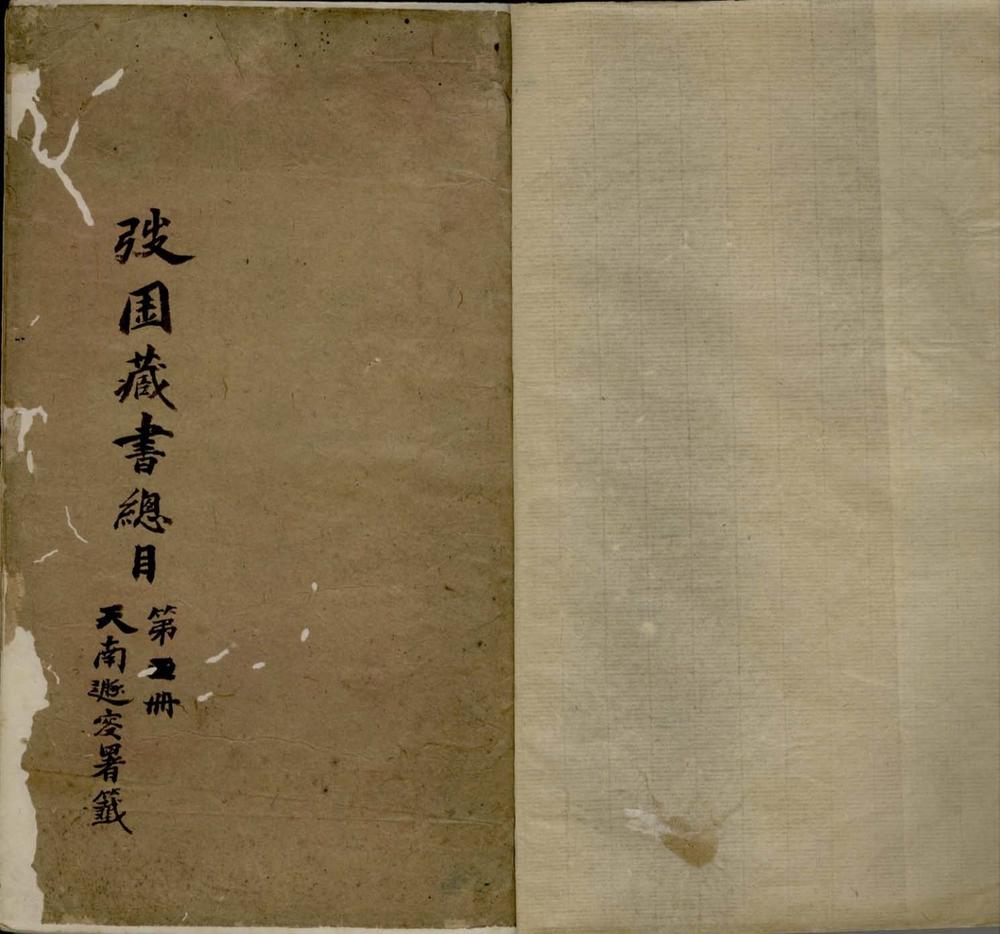 弢園藏書總目
第冊
天南遯叜署籤